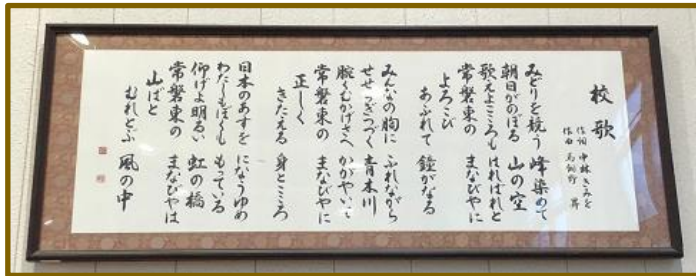 校歌
作詞 中林きみを
作曲 昇
みどりを競う 峰染めて
朝日がのぼる 山の空
歌えよこころも はればれと
常磐東の まなびやに
よろこび
あふれて 鐘がなる
みんなの胸に ふれながら
せせらぎつづく 青木川
腕くむかげさへ かがやいて
常磐東の まなびやに
正しく
きたえる 身とこころ
日本のあすを になうゆめ
わたしもぼくも もっている
仰げよ明るい 虹の橋
常磐東の まなびやは
山ばと
むれとぶ 風の中